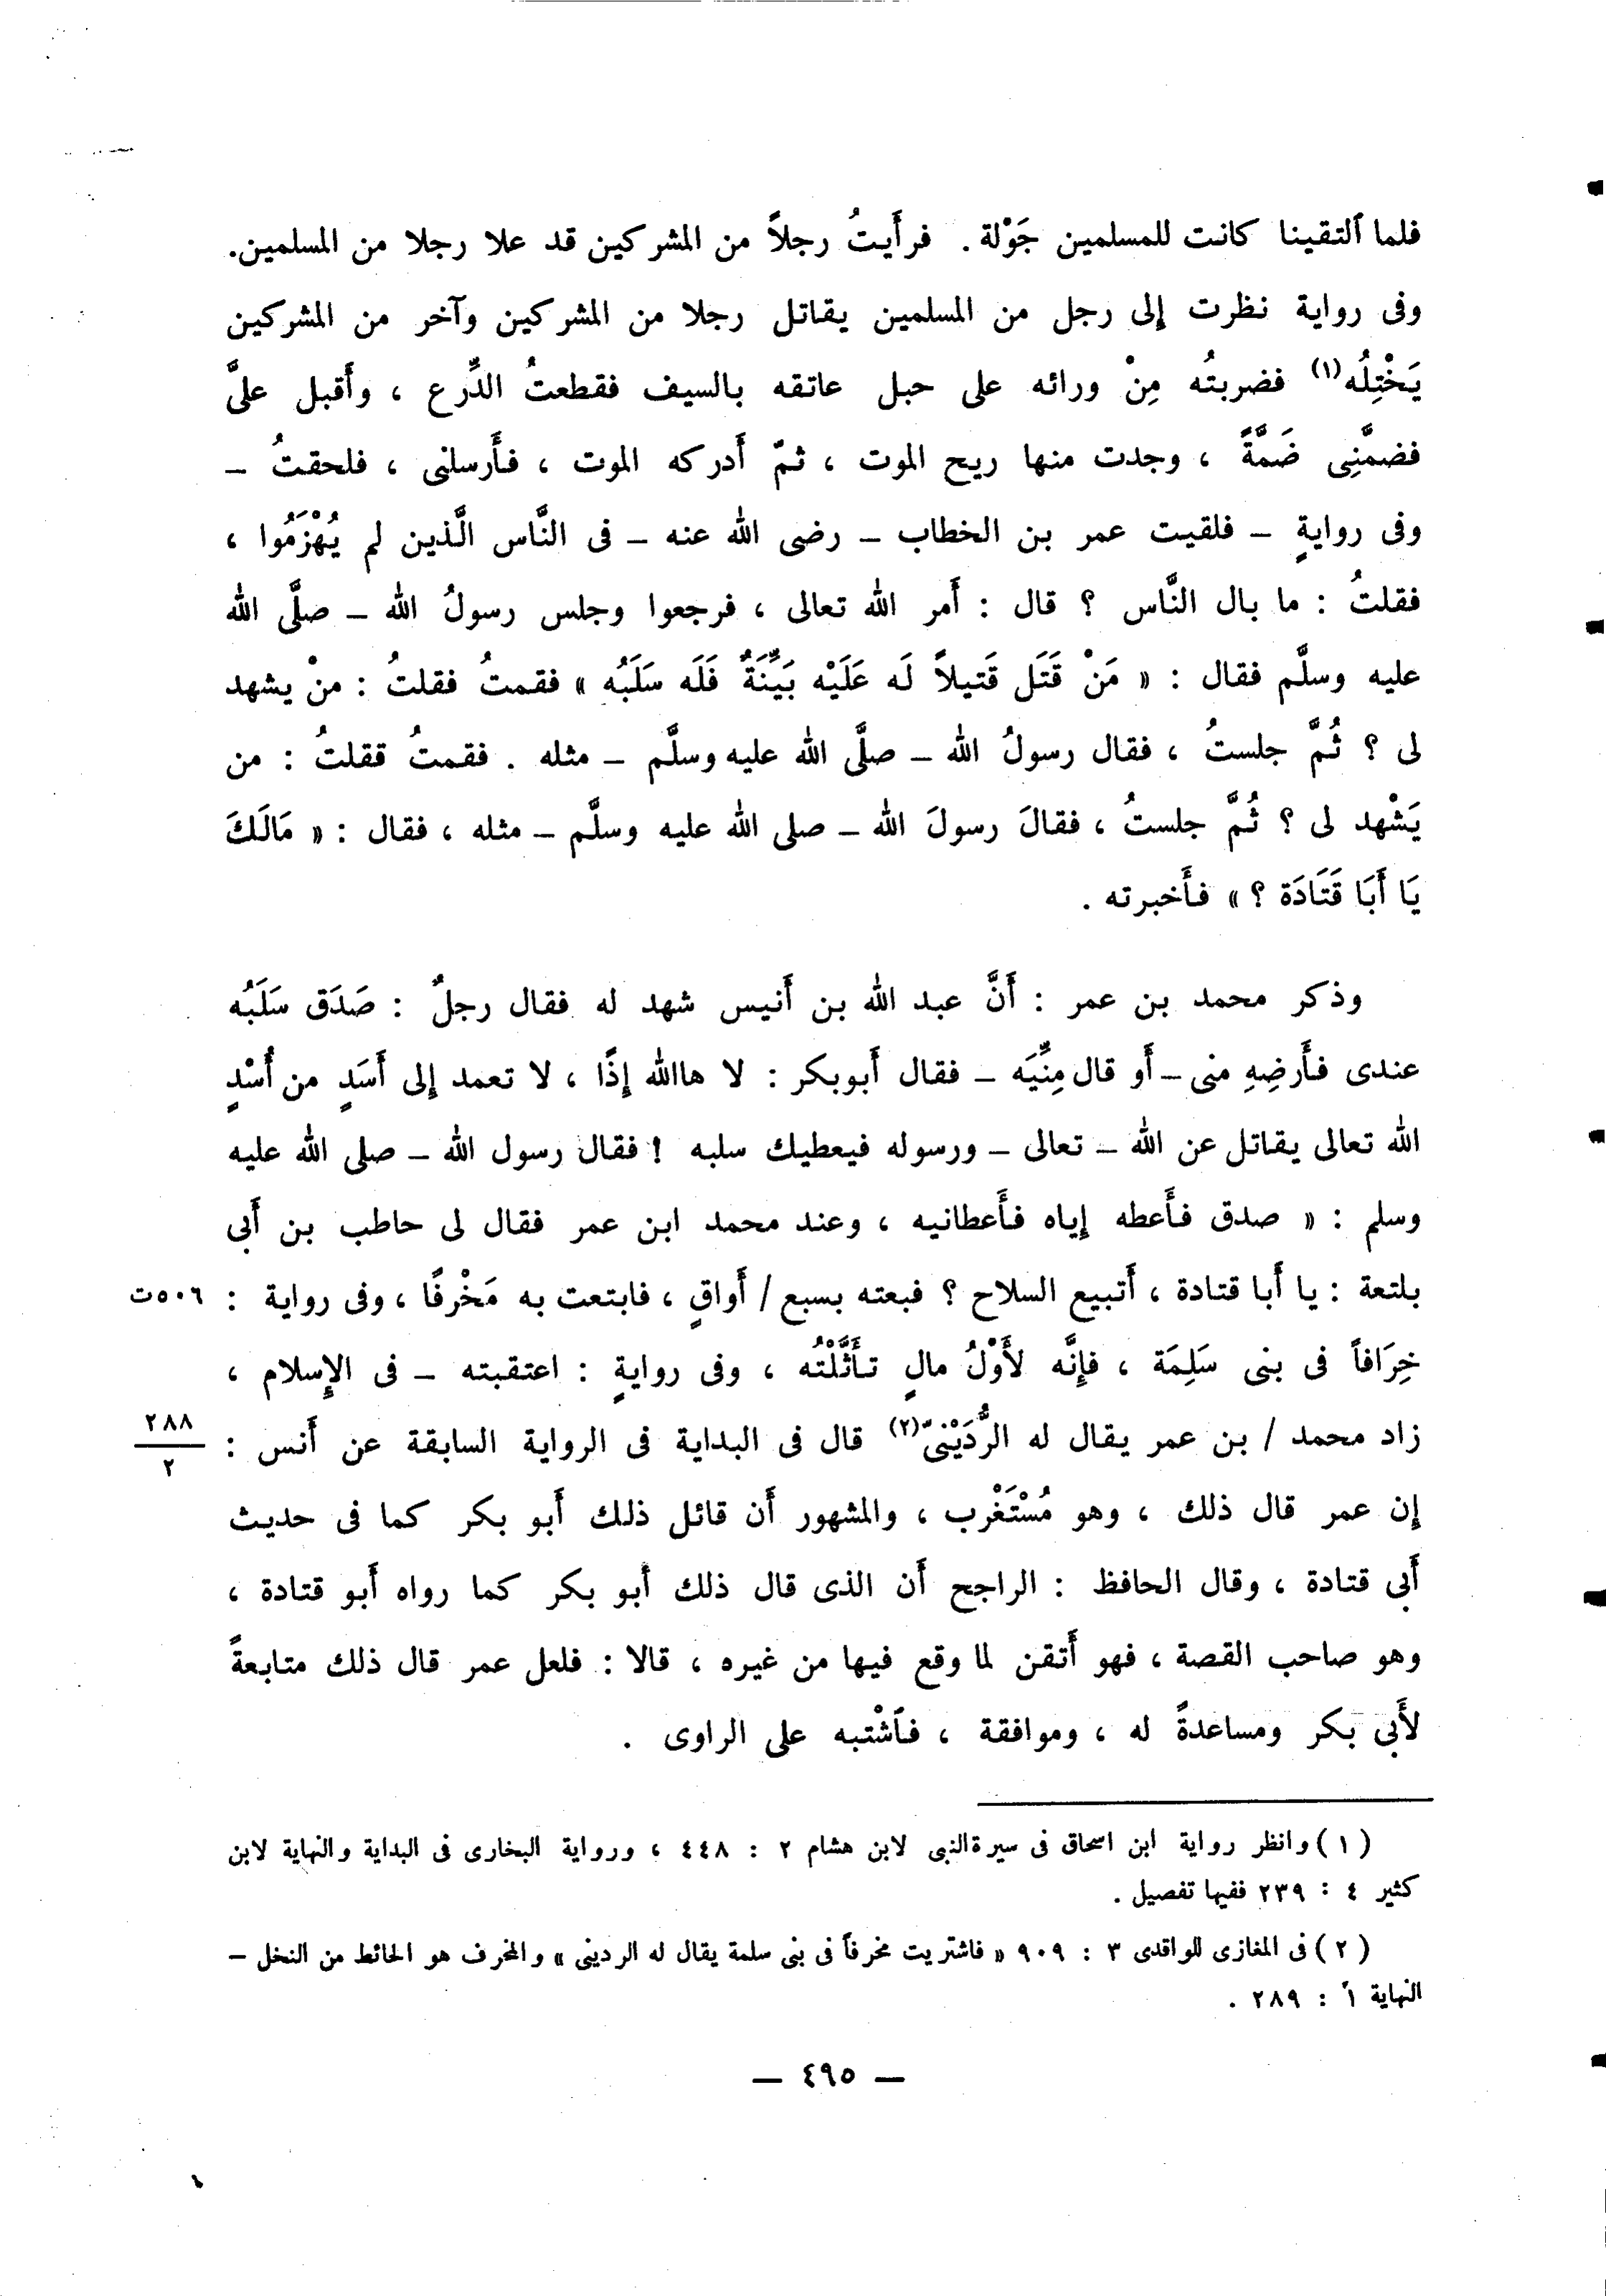 فلما ٱلتقينا كانت للمسلمين جَوْلة . فرأَيتُ رجلاً من المشركين قد علا رجلا من المسلمين.
وفى رواية نظرت إلى رجل من المسلمين يقاتل رجلا من المشركين وآخر من المشركين
يَخْتِلُه(١) فضربتُه مِنْ ورائه على حبل عاتقه بالسيف فقطعتُ الدِّرع ، وأَقبل علىَّ
فضمَّنِى ضَمَّةً ، وجدت منها ريح الموت ، ثمّ أَدركه الموت ، فأَرسلنى ، فلحقتُ –
وفى روايةٍ – فلقيت عمر بن الخطاب – رضى الله عنه – فى النَّاس الَّذين لم يُهْزَمُوا ،
فقلتُ : ما بال النَّاس ؟ قال : أَمر الله تعالى ، فرجعوا وجلس رسولُ الله – صلَّى الله
عليه وسلَّم فقال : « مَنْ قَتَل قَتيلاً لَه عَلَيْه بَيِّنَةٌ فَلَه سَلَبُه » فقمتُ فقلتُ : منْ يشهد
لى ؟ ثُمَّ جلستُ ، فقال رسولُ الله – صلَّى الله عليه وسلَّم – مثله . فقمتُ ققلتُ : من
يَشْهد لى ؟ ثُمَّ جلستُ ، فقالَ رسولَ الله – صلى الله عليه وسلَّم – مثله ، فقال : « مَالَكَ
يَا أَبَا قَتَادَة ؟ » فأَخبرته .
وذكر محمد بن عمر : أَنَّ عبد الله بن أَنيس شهد له فقال رجلٌ : صَدَق سَلَبُه
عندى فأَرضِهِ منى – أَو قال مِنِّيَه – فقال أَبوبكر : لا هاالله إِذًا ، لا تعمد إلى أَسَدٍ من أُسْدٍ
الله تعالى يقاتل عن الله – تعالى – ورسوله فيعطيك سلبه ! فقال رسول الله – صلى الله عليه
وسلم : « صدق فأَعطه إياه فأَعطانيه ، وعند محمد ابن عمر فقال لى حاطب بن أَبى
بلتعة : يا أَبا قتادة ، أَتبيع السلاح ؟ فبعته بسبع / أَواقٍ ، فابتعت به مَخْرفًا ، وفى رواية : ٥٠٦ت
خِرَافاً فى بنى سَلِمَة ، فإِنَّه لأَوْلُ مالٍ تأَثَّلْتُه ، وفى روايةٍ : اعتقبته – فى الإِسلام ،
زاد محمد / بن عمر يقال له الرُّدَيْنىّ(٢) قال فى البداية فى الرواية السابقة عن أَنس : ٢٨٨
٢
إن عمر قال ذلك ، وهو مُسْتَغْرب ، والمشهور أَن قائل ذلك أَبو بكر كما فى حديث
أَبى قتادة ، وقال الحافظ : الراجح أَن الذى قال ذلك أَبو بكر كما رواه أَبو قتادة ،
وهو صاحب القصة ، فهو أَتقن لما وقع فيها من غيره ، قالا : فلعل عمر قال ذلك متابعةً
لأَبى بكر ومساعدةً له ، وموافقة ، فٱشْتبه على الراوى .
(١) وانظر رواية ابن اسحاق فى سيرةالنبى لابن هشام ٢ : ٤٤٨ ، ورواية البخارى فى البداية والنهاية لابن
كثير ٤ : ٢٣٩ ففيها تفصيل .
(٢) فى المغازى للواقدى ٣ : ٩٠٩ « فاشتريت مخرفاً فى بنى سلمة يقال له الردينى » والمخرف هو الحائط من النخل –
النهاية ١ : ٢٨٩ .
– ٤٩٥ –